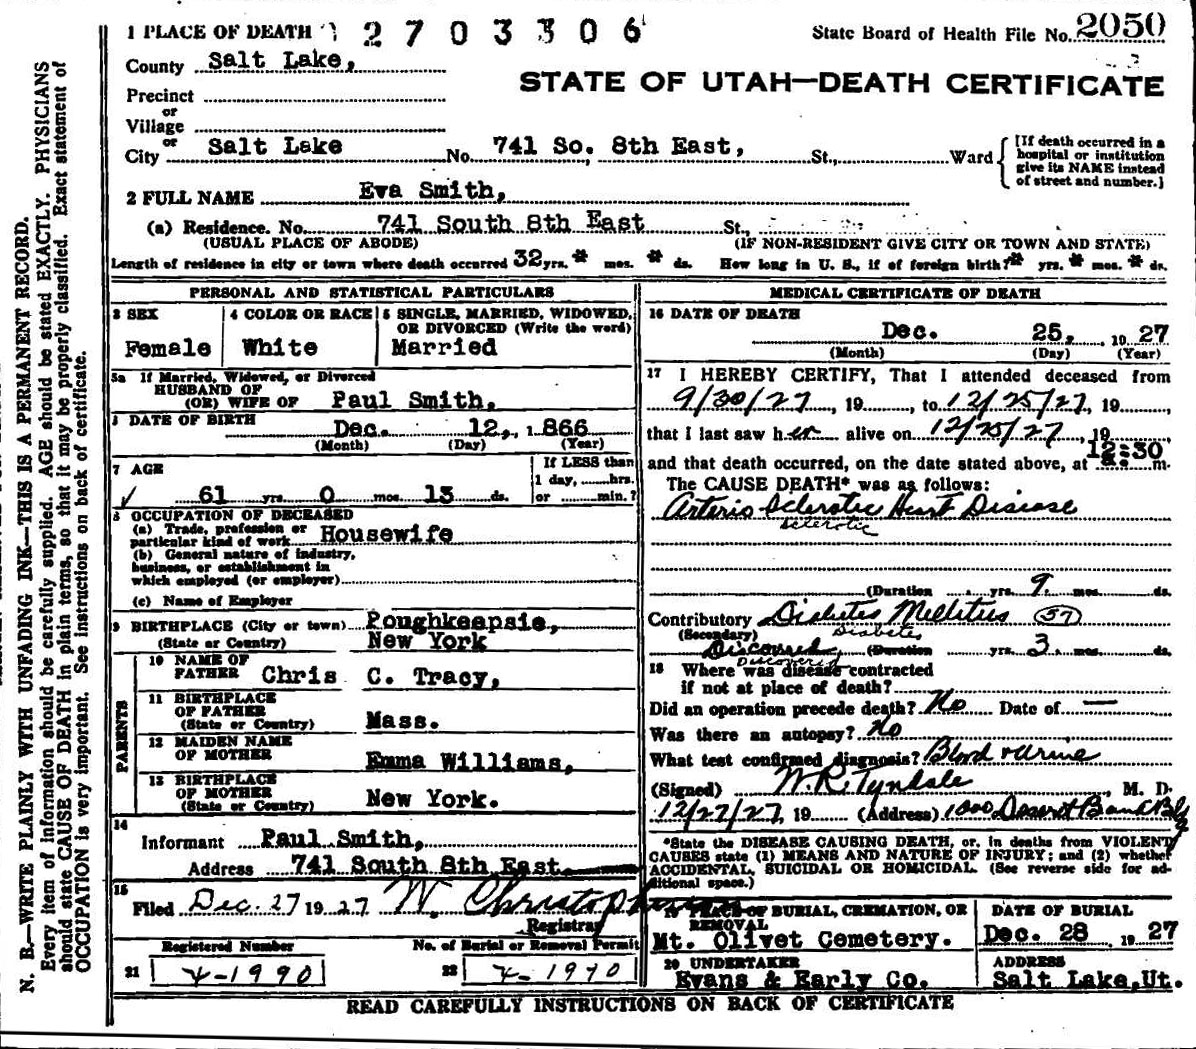 N. B.—WRITE PLAINLY WITH UNFADING INK—THIS IS A PERMANENT RECORD.
Every item of information should be carefully supplied. AGE should be stated EXACTLY. PHYSICIANS
should state CAUSE OF DEATH in plain terms, so that it may be properly classified. Exact statement of
OCCUPATION is very important. See instructions on back of certificate.
1 PLACE OF DEATH 2703306
State Board of Health File No. 2050
County Salt Lake,
STATE OF UTAH—DEATH CERTIFICATE
Precinct
or
Village
or
City Salt Lake No. 741 So. 8th East, St., Ward
[If death occurred in a
hospital or institution
give its NAME instead
of street and number.]
2 FULL NAME Eva Smith,
(a) Residence. No. 741 South 8th East St.,
(USUAL PLACE OF ABODE) (IF NON-RESIDENT GIVE CITY OR TOWN AND STATE)
Length of residence in city or town where death occurred 32 yrs. * mos. * ds. How long in U. S., if of foreign birth? * yrs. * mos. * ds.
PERSONAL AND STATISTICAL PARTICULARS
3 SEX
Female
4 COLOR OR RACE
White
5 SINGLE, MARRIED, WIDOWED,
OR DIVORCED (Write the word)
Married
5a If Married, Widowed, or Divorced
HUSBAND OF
(OR) WIFE OF Paul Smith,
DATE OF BIRTH Dec. 12, 1866
(Month) (Day) (Year)
7 AGE
61 yrs. 0 mos. 13 ds.
If LESS than
1 day, hrs.
or min.?
8 OCCUPATION OF DECEASED
(a) Trade, profession or
particular kind of work Housewife
(b) General nature of industry,
business, or establishment in
which employed (or employer)
(c) Name of Employer
9 BIRTHPLACE (City or town) Poughkeepsie,
(State or Country) New York
PARENTS
10 NAME OF
FATHER Chris C. Tracy,
11 BIRTHPLACE
OF FATHER
(State or Country) Mass.
12 MAIDEN NAME
OF MOTHER Emma Williams,
13 BIRTHPLACE
OF MOTHER
(State or Country) New York.
14
Informant Paul Smith,
Address 741 South 8th East
15
Filed Dec. 27 1927 W. Christopherson
Registrar
Registered Number
21 4-1990
No. of Burial or Removal Permit
22 4-1990
MEDICAL CERTIFICATE OF DEATH
16 DATE OF DEATH
Dec. 25, 1927
(Month) (Day) (Year)
17 I HEREBY CERTIFY, That I attended deceased from
9/30/27, 19, to 12/25/27, 19,
that I last saw her alive on 12/25/27, 19
and that death occurred, on the date stated above, at 12:30 a. m.
The CAUSE DEATH* was as follows:
Arterio Sclerotic Heart Disease
Sclerotic
(Duration yrs. 9 mos. ds.
Contributory Diabetes Mellitus 57
(Secondary) Diabetes
Discovered (Duration yrs. 3 mos. ds.
Discovered
18 Where was disease contracted
if not at place of death?
Did an operation precede death? No Date of —
Was there an autopsy? No
What test confirmed diagnosis? Blood & Urine
(Signed) W. R. Tyndale, M. D.
12/27/27, 19 (Address) 1000 Deseret Bank Blg
*State the DISEASE CAUSING DEATH, or, in deaths from VIOLENT
CAUSES state (1) MEANS AND NATURE OF INJURY; and (2) whether
ACCIDENTAL, SUICIDAL OR HOMICIDAL. (See reverse side for ad-
ditional space.)
19 PLACE OF BURIAL, CREMATION, OR
REMOVAL
Mt. Olivet Cemetery.
DATE OF BURIAL
Dec. 28 1927
20 UNDERTAKER
Evans & Early Co.
ADDRESS
Salt Lake, Ut.
READ CAREFULLY INSTRUCTIONS ON BACK OF CERTIFICATE